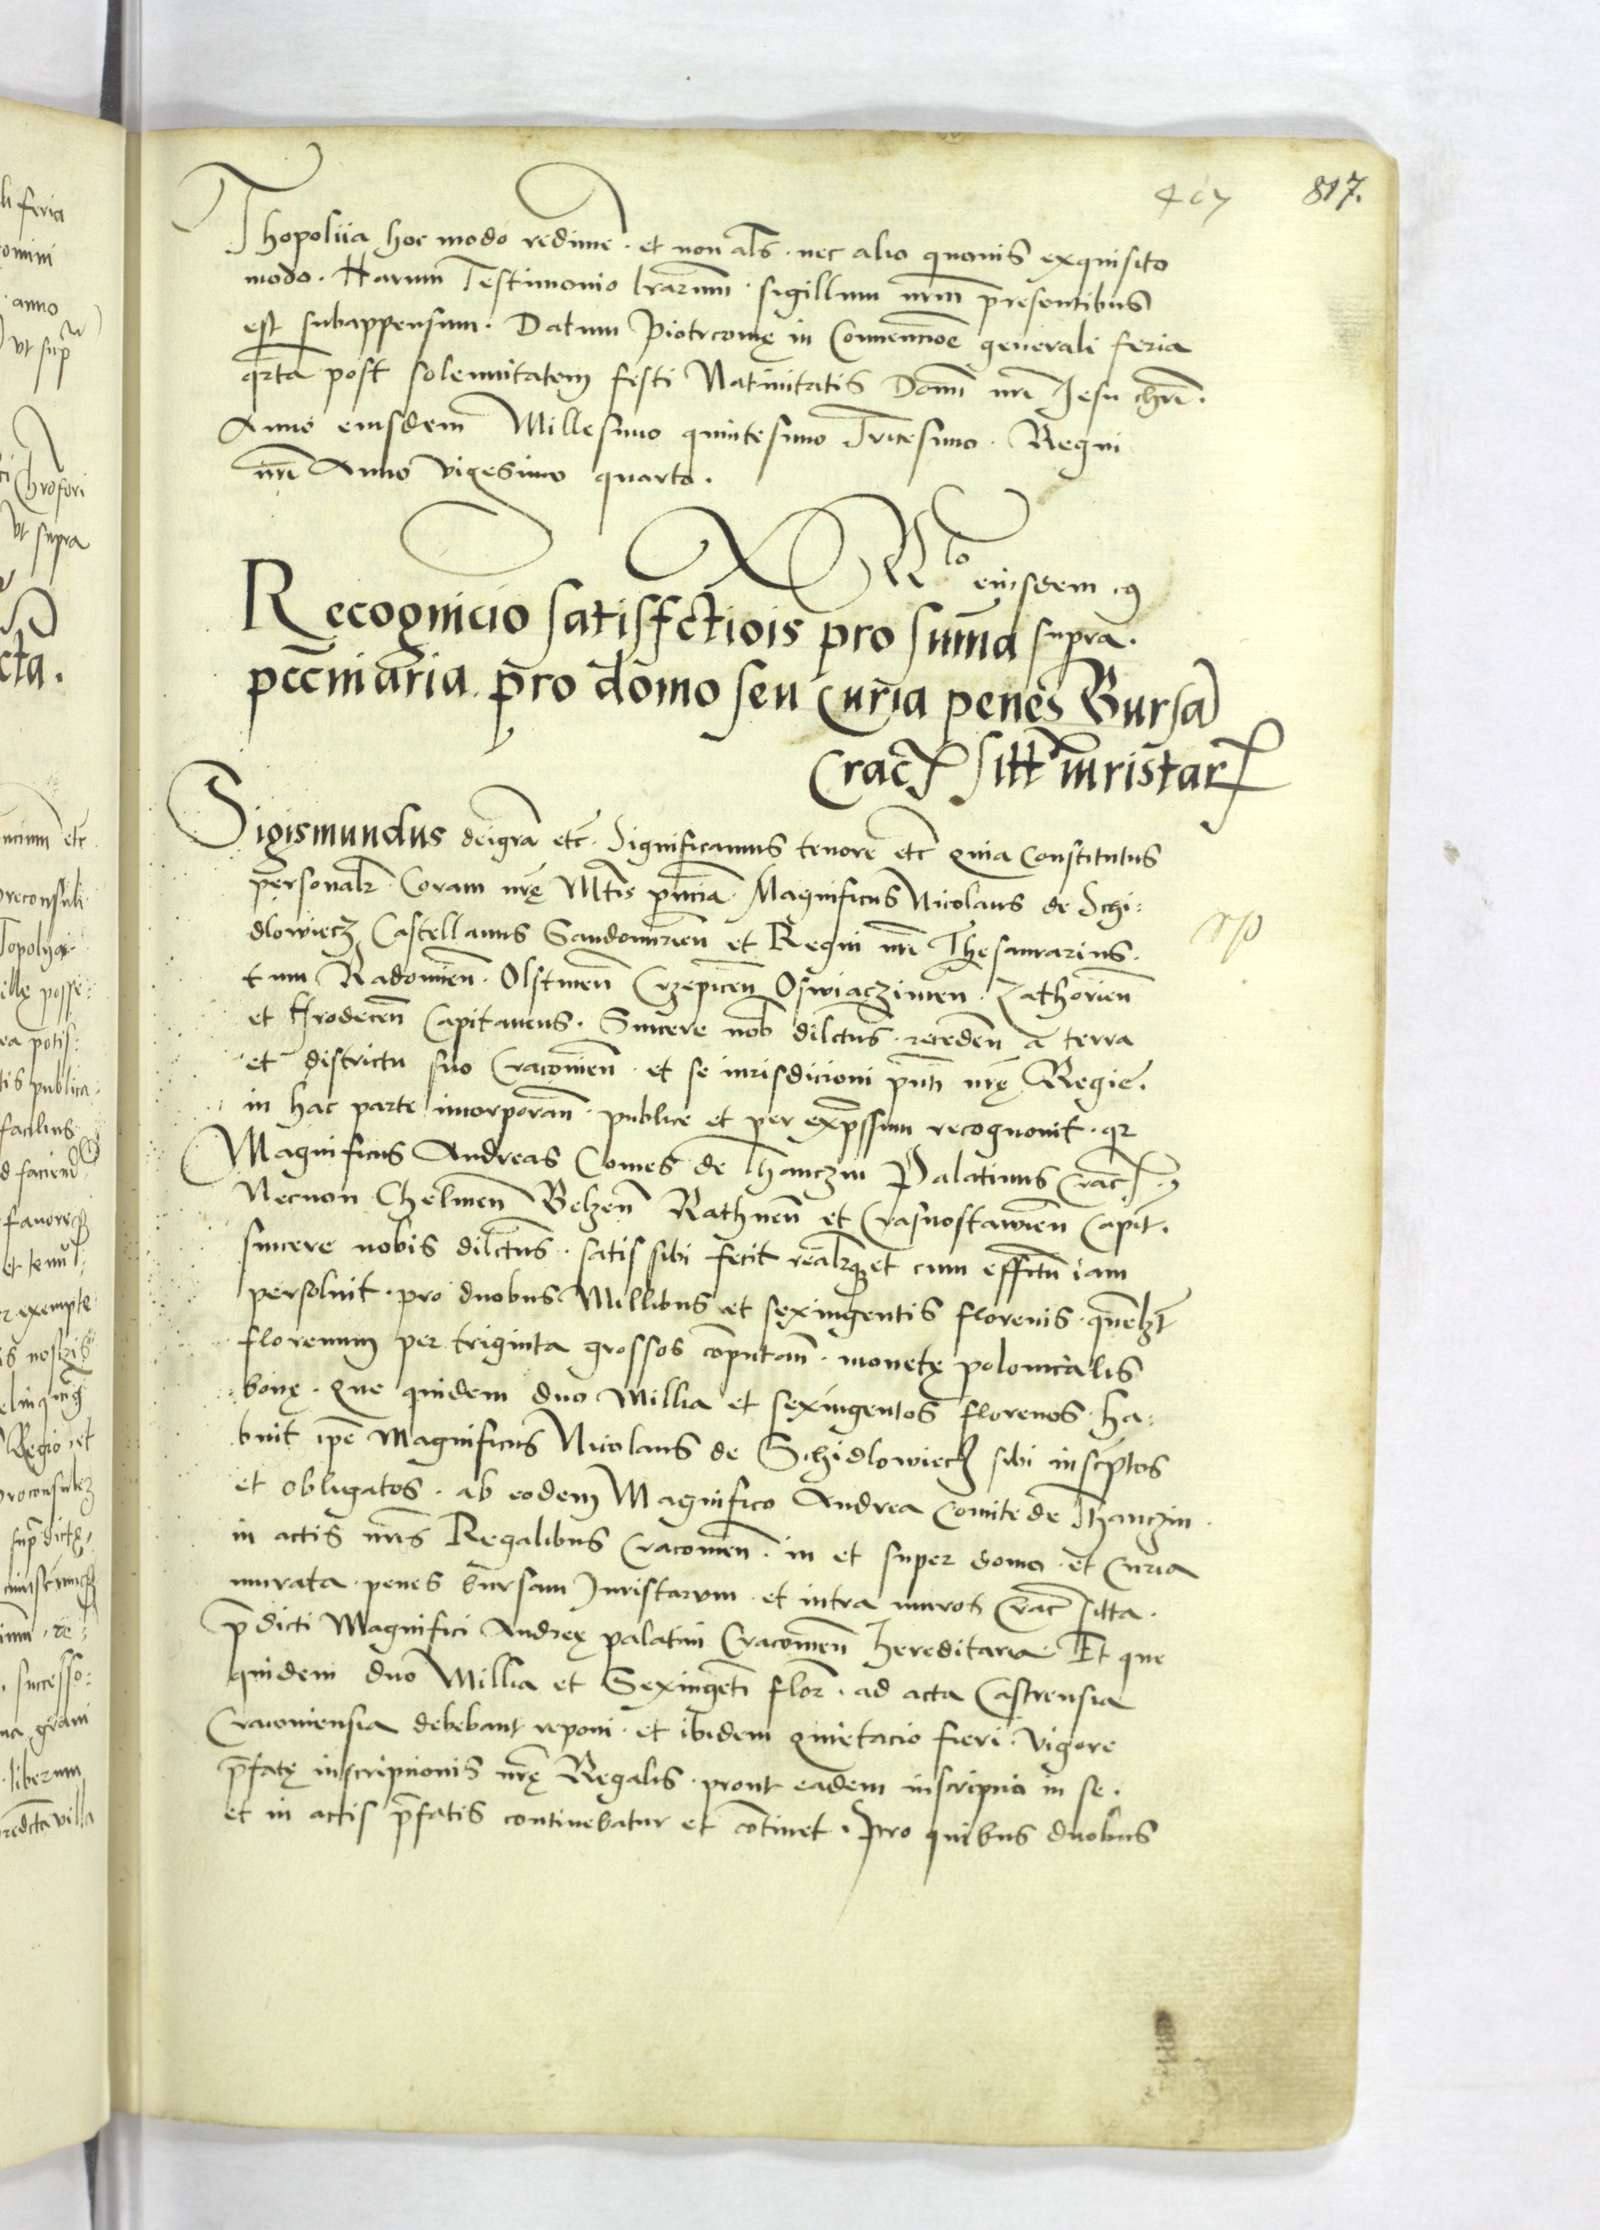 407 817.
Thopolija hoc modo redime. et non als. nec alio quouis exquisito
modo. Harum Testimonio lrarum. sigillum nrm presentibus
est subappensum. Datum Piotrcouię in Conuencione generali feria
qrta post solennitatem festi Natiuitatis Domi nri Jesu chri.
Anno eiusdem Millesimo quintesimo Tricesimo. Regni
nri Anno vigesimo quarto.
Rlo eiusdem
Recognicio satisfctiois pro suma supra.
peccniaria pro domo seu curia penes Bursa
Crac sitt iuristar
Sigismundus dei gra etc. Significamus tenore etc quia Constitutus
personalr Coram nrę Mtis pncia Magnificus Nicolaus de Schi:
dlowiecz Castellanus Sandomirien et Regni nri Thesaurarius.
tum Radomien. Olstinen Crzepicen Oswiaczimen. Zathorien
et Grodecen Capitaneus. Sincere nob dilctus. receden a terra
et districtu suo Cracouien. et se iurisdicioni pnti nrę Regie.
in hac parte incorporan. publice et per expssum recognouit. qr
Magnificus Andreas Comes de Thanczin Palatinus Crac
Necnon Chelmen Belzen Rathnen et Crasnostawien Capit.
sincere nobis dilctus. satis sibi fecit realr et cum effctu iam
persoluit. pro duobus Millibus et sexingentis florenis. qmlbz
florenum per triginta grossos computan. monetę polonicalis
bonę. Que quidem duo Millia et sexingentos florenos ha:
buit ipe Magnificus Nicolaus de Schidlowiecz sibi inscptos
et obligatos. ab eodem Magnifico Andrea Comite de Thanczin.
in actis nris Regalibus Cracouien. in et super domo. et Curia
murata penes bursam Juristarum. et intra muros Crac sitta.
pdicti Magnifici Andreę palatini Cracouien hereditaria. Et que
quidem duo Millia et Sexingeti flor. ad acta Castrensia
Cracouiensia debebant reponi. et ibidem quietacio fieri. vigore
pfatę inscriptionis nrę Regalis. prout eadem inscriptio in se.
et in actis pfatis continebatur et cotinet. Pro quibus duobus